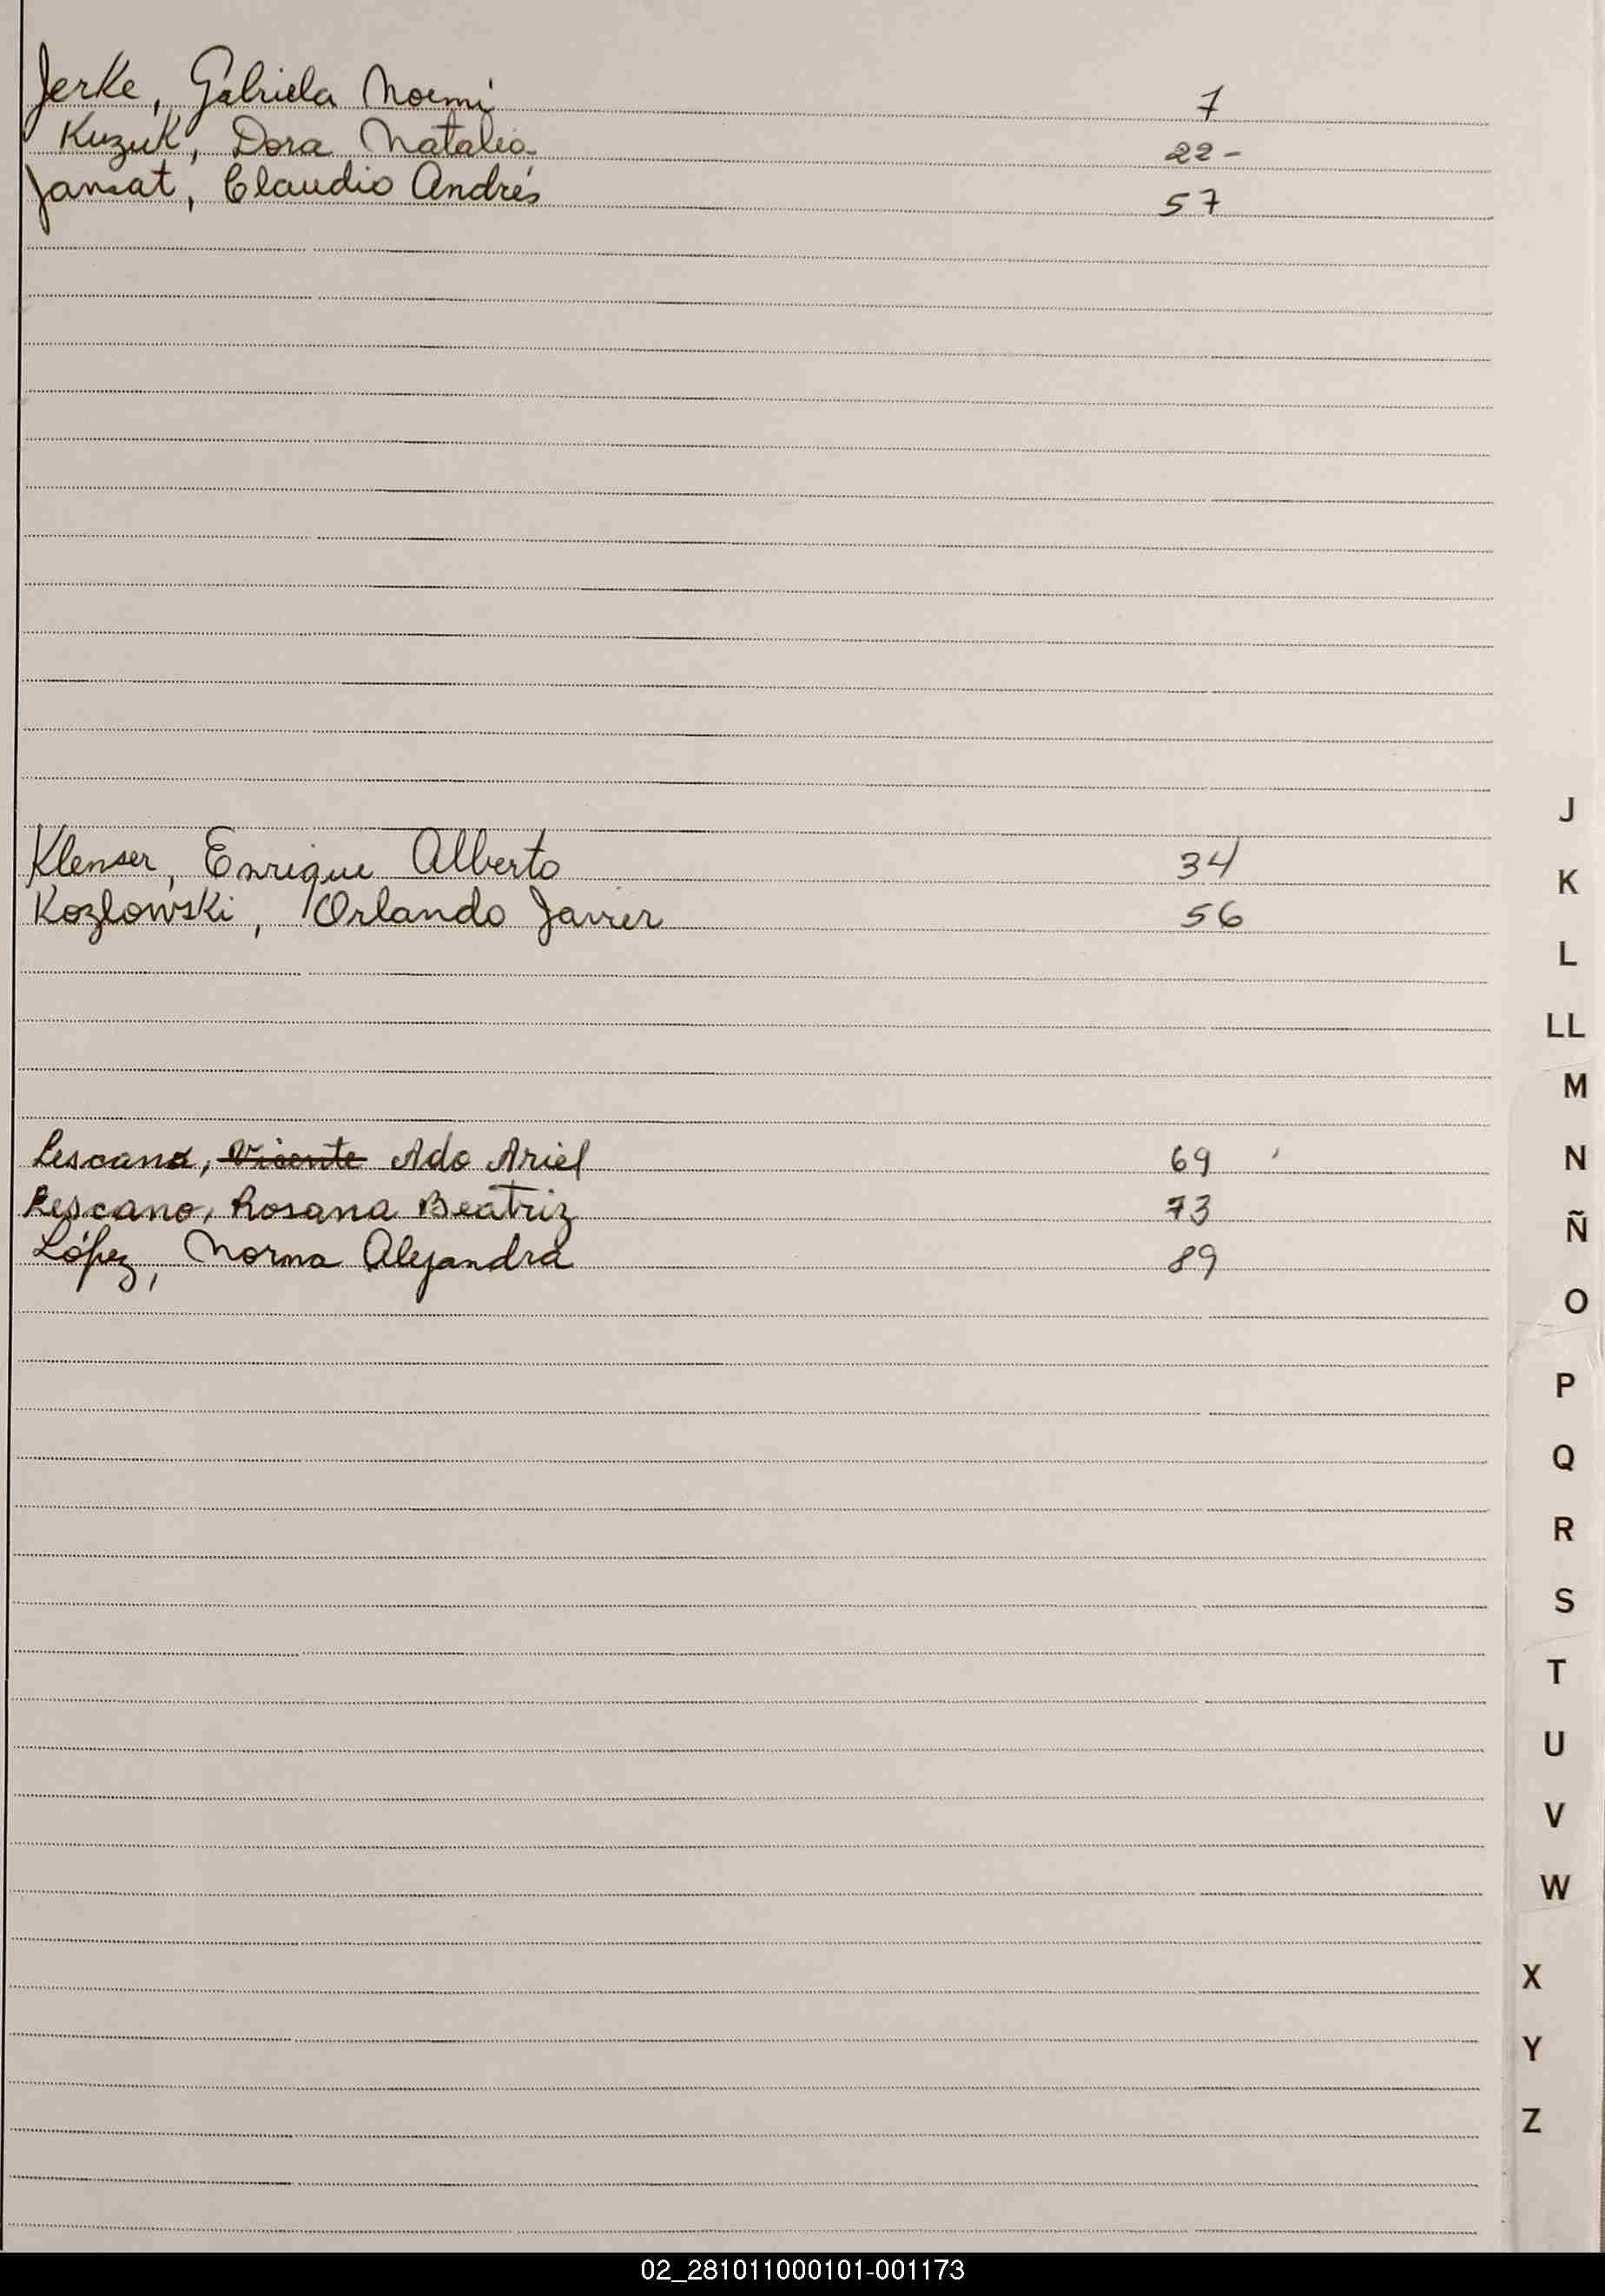 Jerke, Gabriela Noemi 7
Kuzuk, Dora Natalia 22-
Jansat, Claudio Andrés 57
Klenser, Enrique Alberto 34
Kozlowski, Orlando Javier 56
Lescano, Vicente Ado Ariel 69
Lescano, Rosana Beatriz 73
López, Norma Alejandra 89
J
K
L
LL
M
N
Ñ
O
P
Q
R
S
T
U
V
W
X
Y
Z
02_281011000101-001173